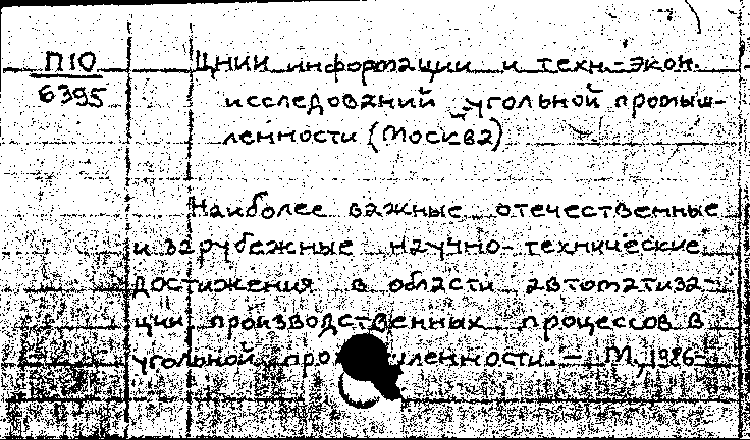 П10
6395
ЦНИИ информации и техн.-экон.
исследований угольной промыш-
ленности (Москва)
Наиболее важные отечественные
и зарубежные научно-технические
достижения в области автоматиза-
ции производственных процессов в
угольной промышленности. – М., 1986-